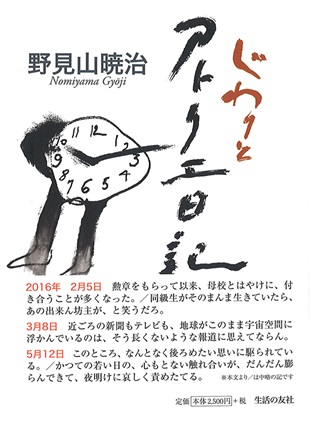 じわりと
アトリエ日記
野見山暁治
Nomiyama Gyōji
11 12 1
10 2
9 3
8 4
7 6 5
2016年 2月5日 勲章をもらって以来、母校とはやけに、付
き合うことが多くなった。／同級生がそのまんま生きていたら、
あの出来ん坊主が、と笑うだろ。
3月8日 近ごろの新聞もテレビも、地球がこのまま宇宙空間に
浮かんでいるのは、そう長くないような報道に思えてならん。
5月12日 このところ、なんとなく後ろめたい思いに駆られてい
る。／かつての若い日の、心もとない触れ合いが、だんだん膨
らんできて、夜明けに哀しく責めたてる。 ※本文より／は中略の記です
定価 本体2,500円 +税 生活の友社